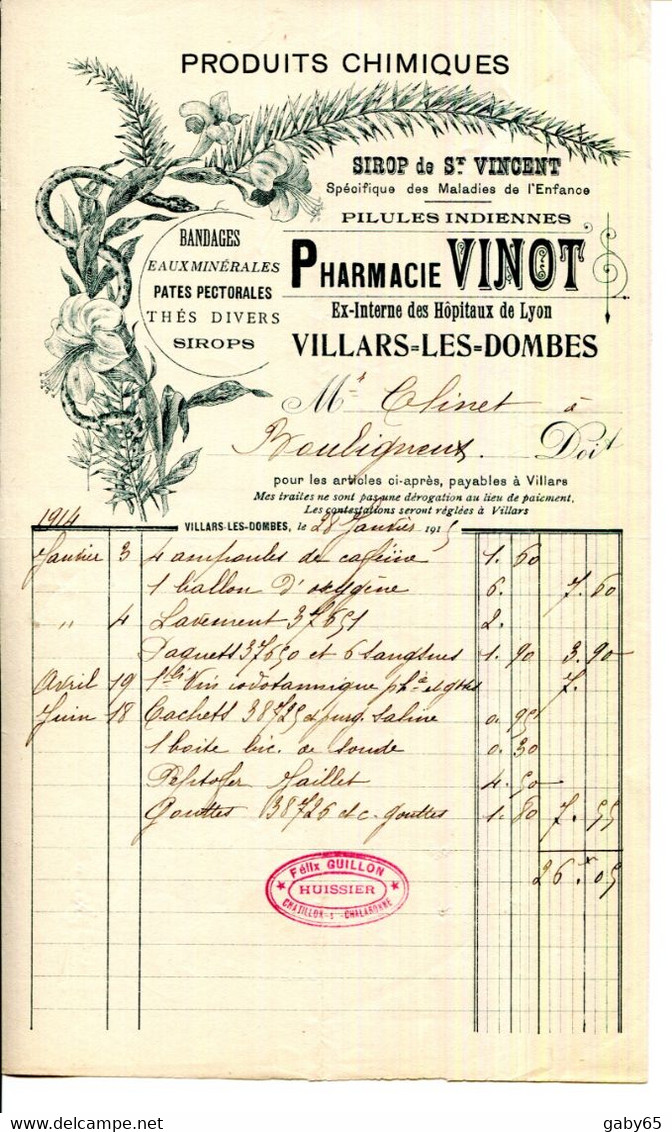 PRODUITS CHIMIQUES
SIROP de ST VINCENT
Spécifique des Maladies de l'Enfance
PILULES INDIENNES
BANDAGES
EAUX MINÉRALES
PATES PECTORALES
THÉS DIVERS
SIROPS
PHARMACIE VINOT
Ex-Interne des Hôpitaux de Lyon
VILLARS=LES=DOMBES
Mr Clinet à
Bouligneux. Doit
pour les articles ci-après, payables à Villars
Mes traites ne sont pas une dérogation au lieu de paiement.
Les contestations seront réglées à Villars
1914
VILLARS-LES-DOMBES, le 28 Janvier 1915
Janvier 3 4 ampoules de caféine 1. 60
1 ballon d'oxygène 6. 7. 60
" 4 Lavement 37651 2.
Paquets 37650 et 6 sangsues 1. 90 3. 90
Avril 19 Vin iodotannique ph.é et gttes 7.
Juin 18 Cachets 38725 et purg. saline 0. 95
1 boite bic. de soude 0. 30
Peptofer Jaillet 4. 50
Gouttes 38726 et c. gouttes 1. 80 7. 55
26. 05
Félix GUILLON
HUISSIER
CHATILLON-s-CHALARONNE
delcampe.net
gaby65